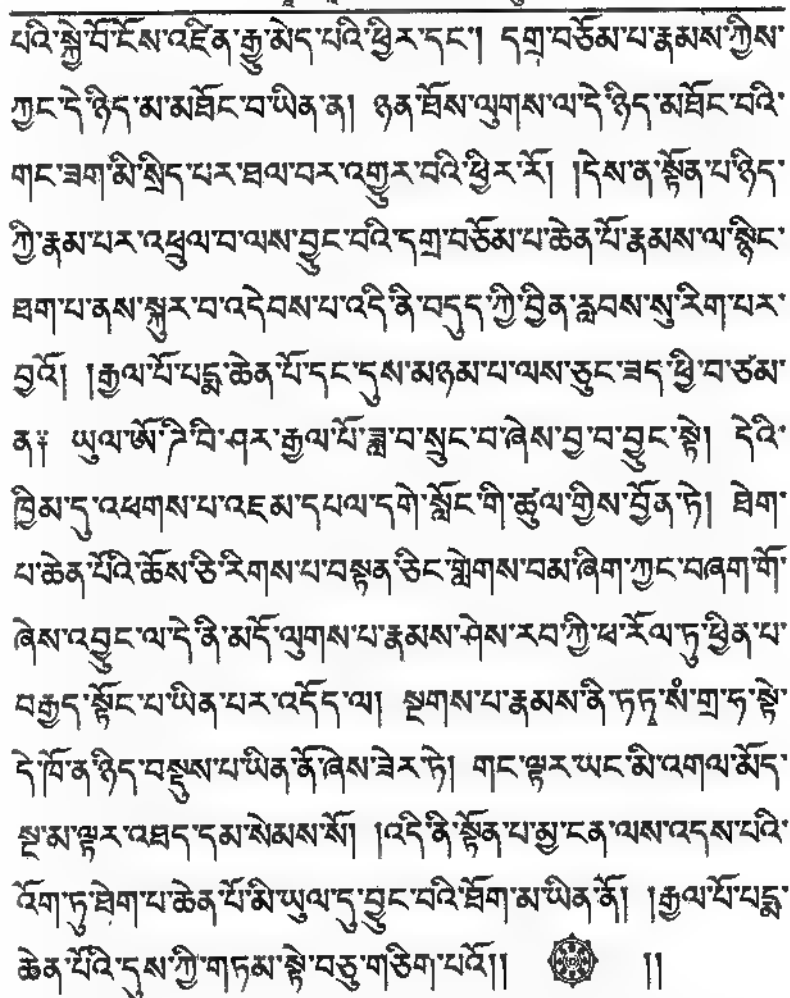 པའི་སྐྱེ་བོ་ངོས་འཛིན་རྒྱུ་མེད་པའི་ཕྱིར་དང་། དགྲ་བཅོམ་པ་རྣམས་ཀྱིས་
ཀྱང་དེ་ཉིད་མ་མཐོང་བ་ཡིན་ན། ཉན་ཐོས་ལུགས་ལ་དེ་ཉིད་མཐོང་བའི་
གང་ཟག་མི་སྲིད་པར་ཐལ་བར་འགྱུར་བའི་ཕྱིར་རོ། །དེས་ན་སྟོན་པ་ཉིད་
ཀྱི་རྣམ་པར་འཕྲུལ་བ་ལས་བྱུང་བའི་དགྲ་བཅོམ་པ་ཆེན་པོ་རྣམས་ལ་སྙིང་
ཐག་པ་ནས་སྐུར་བ་འདེབས་པ་འདི་ནི་བདུད་ཀྱི་བྱིན་རླབས་སུ་རིག་པར་
བྱའོ། །རྒྱལ་པོ་པདྨ་ཆེན་པོ་དང་དུས་མཉམ་པ་ལས་ཅུང་ཟད་ཕྱི་བ་ཙམ་
ན༔ ཡུལ་ཨོ་ཌི་བི་ཤར་རྒྱལ་པོ་ཟླ་བ་སྲུང་བ་ཞེས་བྱ་བ་བྱུང་སྟེ། དེའི་
ཁྱིམ་དུ་འཕགས་པ་འཇམ་དཔལ་དགེ་སློང་གི་ཚུལ་གྱིས་བྱོན་ཏེ། ཐེག་
པ་ཆེན་པོའི་ཆོས་ཅི་རིགས་པ་བསྟན་ཅིང་གླེགས་བམ་ཞིག་ཀྱང་བཞག་གོ་
ཞེས་འབྱུང་ལ་དེ་ནི་མདོ་ལུགས་པ་རྣམས་ཤེས་རབ་ཀྱི་ཕ་རོལ་ཏུ་ཕྱིན་པ་
བརྒྱད་སྟོང་པ་ཡིན་པར་འདོད་ལ། སྔགས་པ་རྣམས་ནི་ཏཏྭ་སཾ་གྲ་ཧ་སྟེ་
དེ་ཁོ་ན་ཉིད་བསྡུས་པ་ཡིན་ནོ་ཞེས་ཟེར་ཏེ། གང་ལྟར་ཡང་མི་འགལ་མོད་
སྔ་མ་ལྟར་འཐད་དམ་སེམས་སོ། །འདི་ནི་སྟོན་པ་མྱ་ངན་ལས་འདས་པའི་
འོག་ཏུ་ཐེག་པ་ཆེན་པོ་མི་ཡུལ་དུ་བྱུང་བའི་ཐོག་མ་ཡིན་ནོ། །རྒྱལ་པོ་པདྨ་
ཆེན་པོའི་དུས་ཀྱི་གཏམ་སྟེ་བཅུ་གཅིག་པའོ།། །།